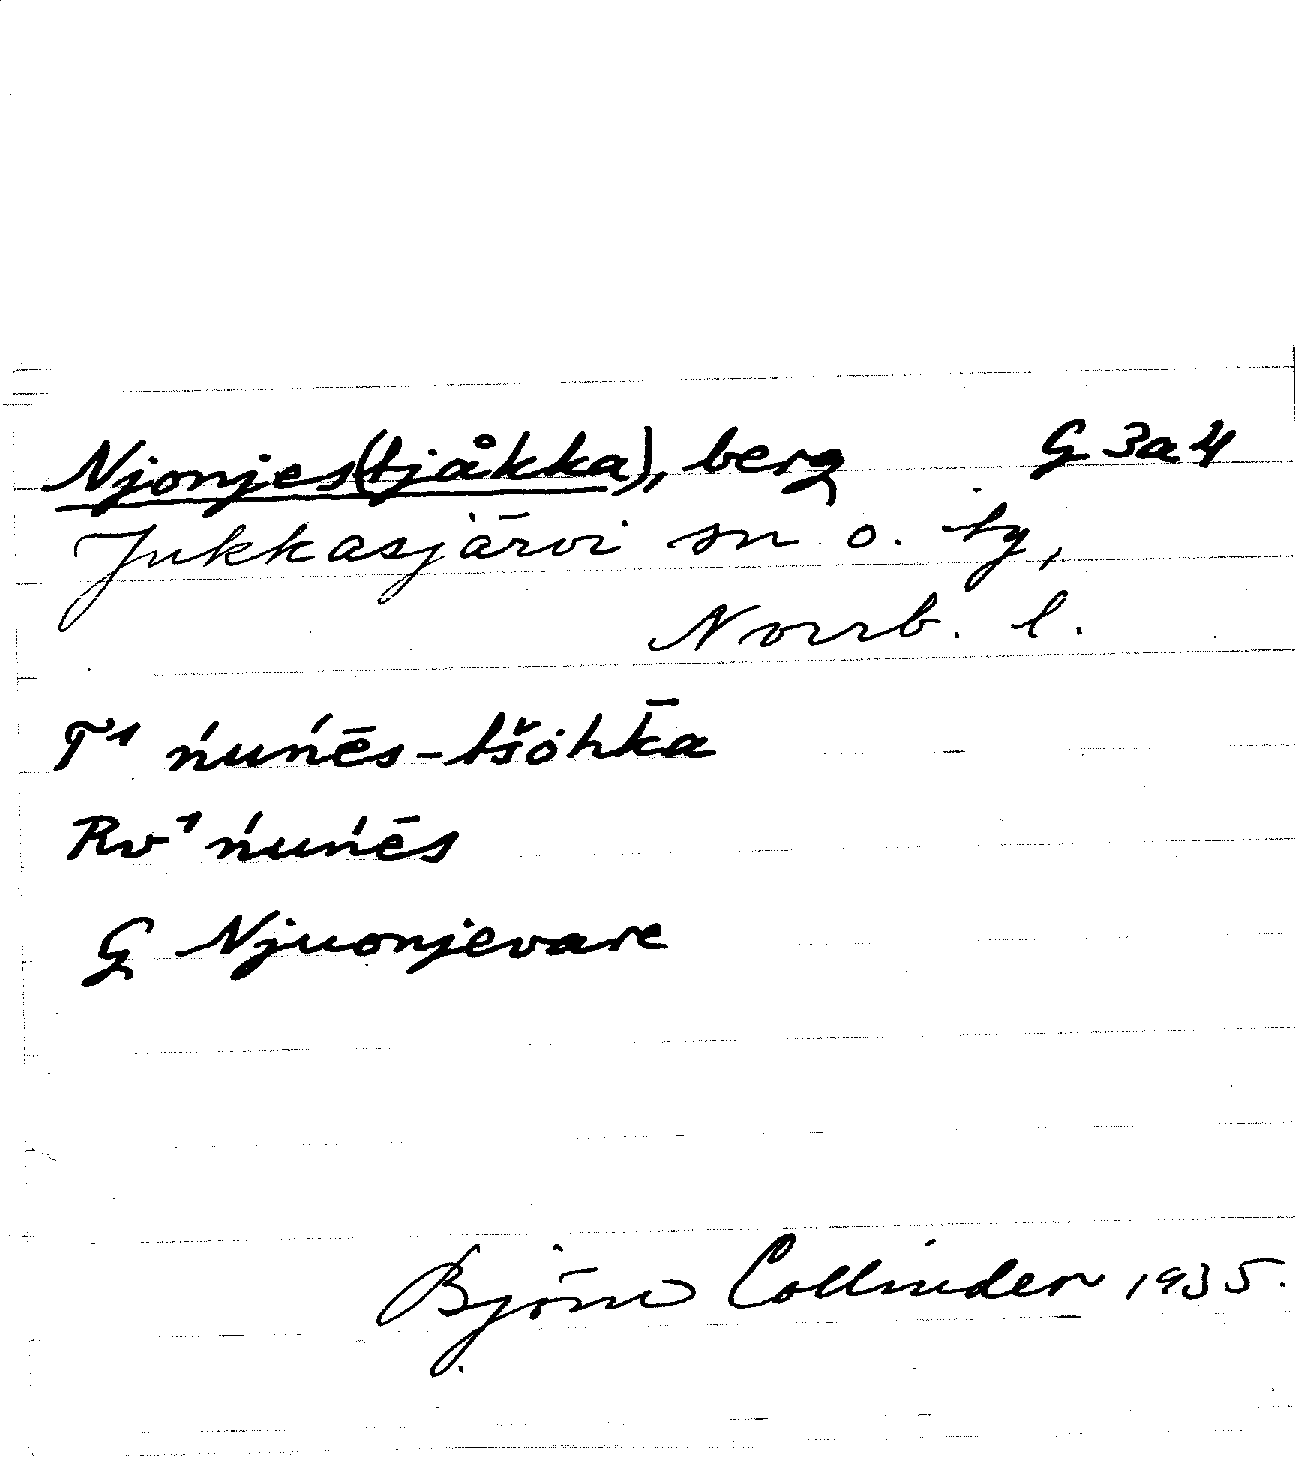 Njonjes(tjåkka), berg G 3a4
Jukkasjärvi sn o. tg,
Norrb. l.
T¹ ńuńēs-tšȯhk̄a
Rv¹ ńuńēs
G Njuonjevare
Björn Collinder 1935.